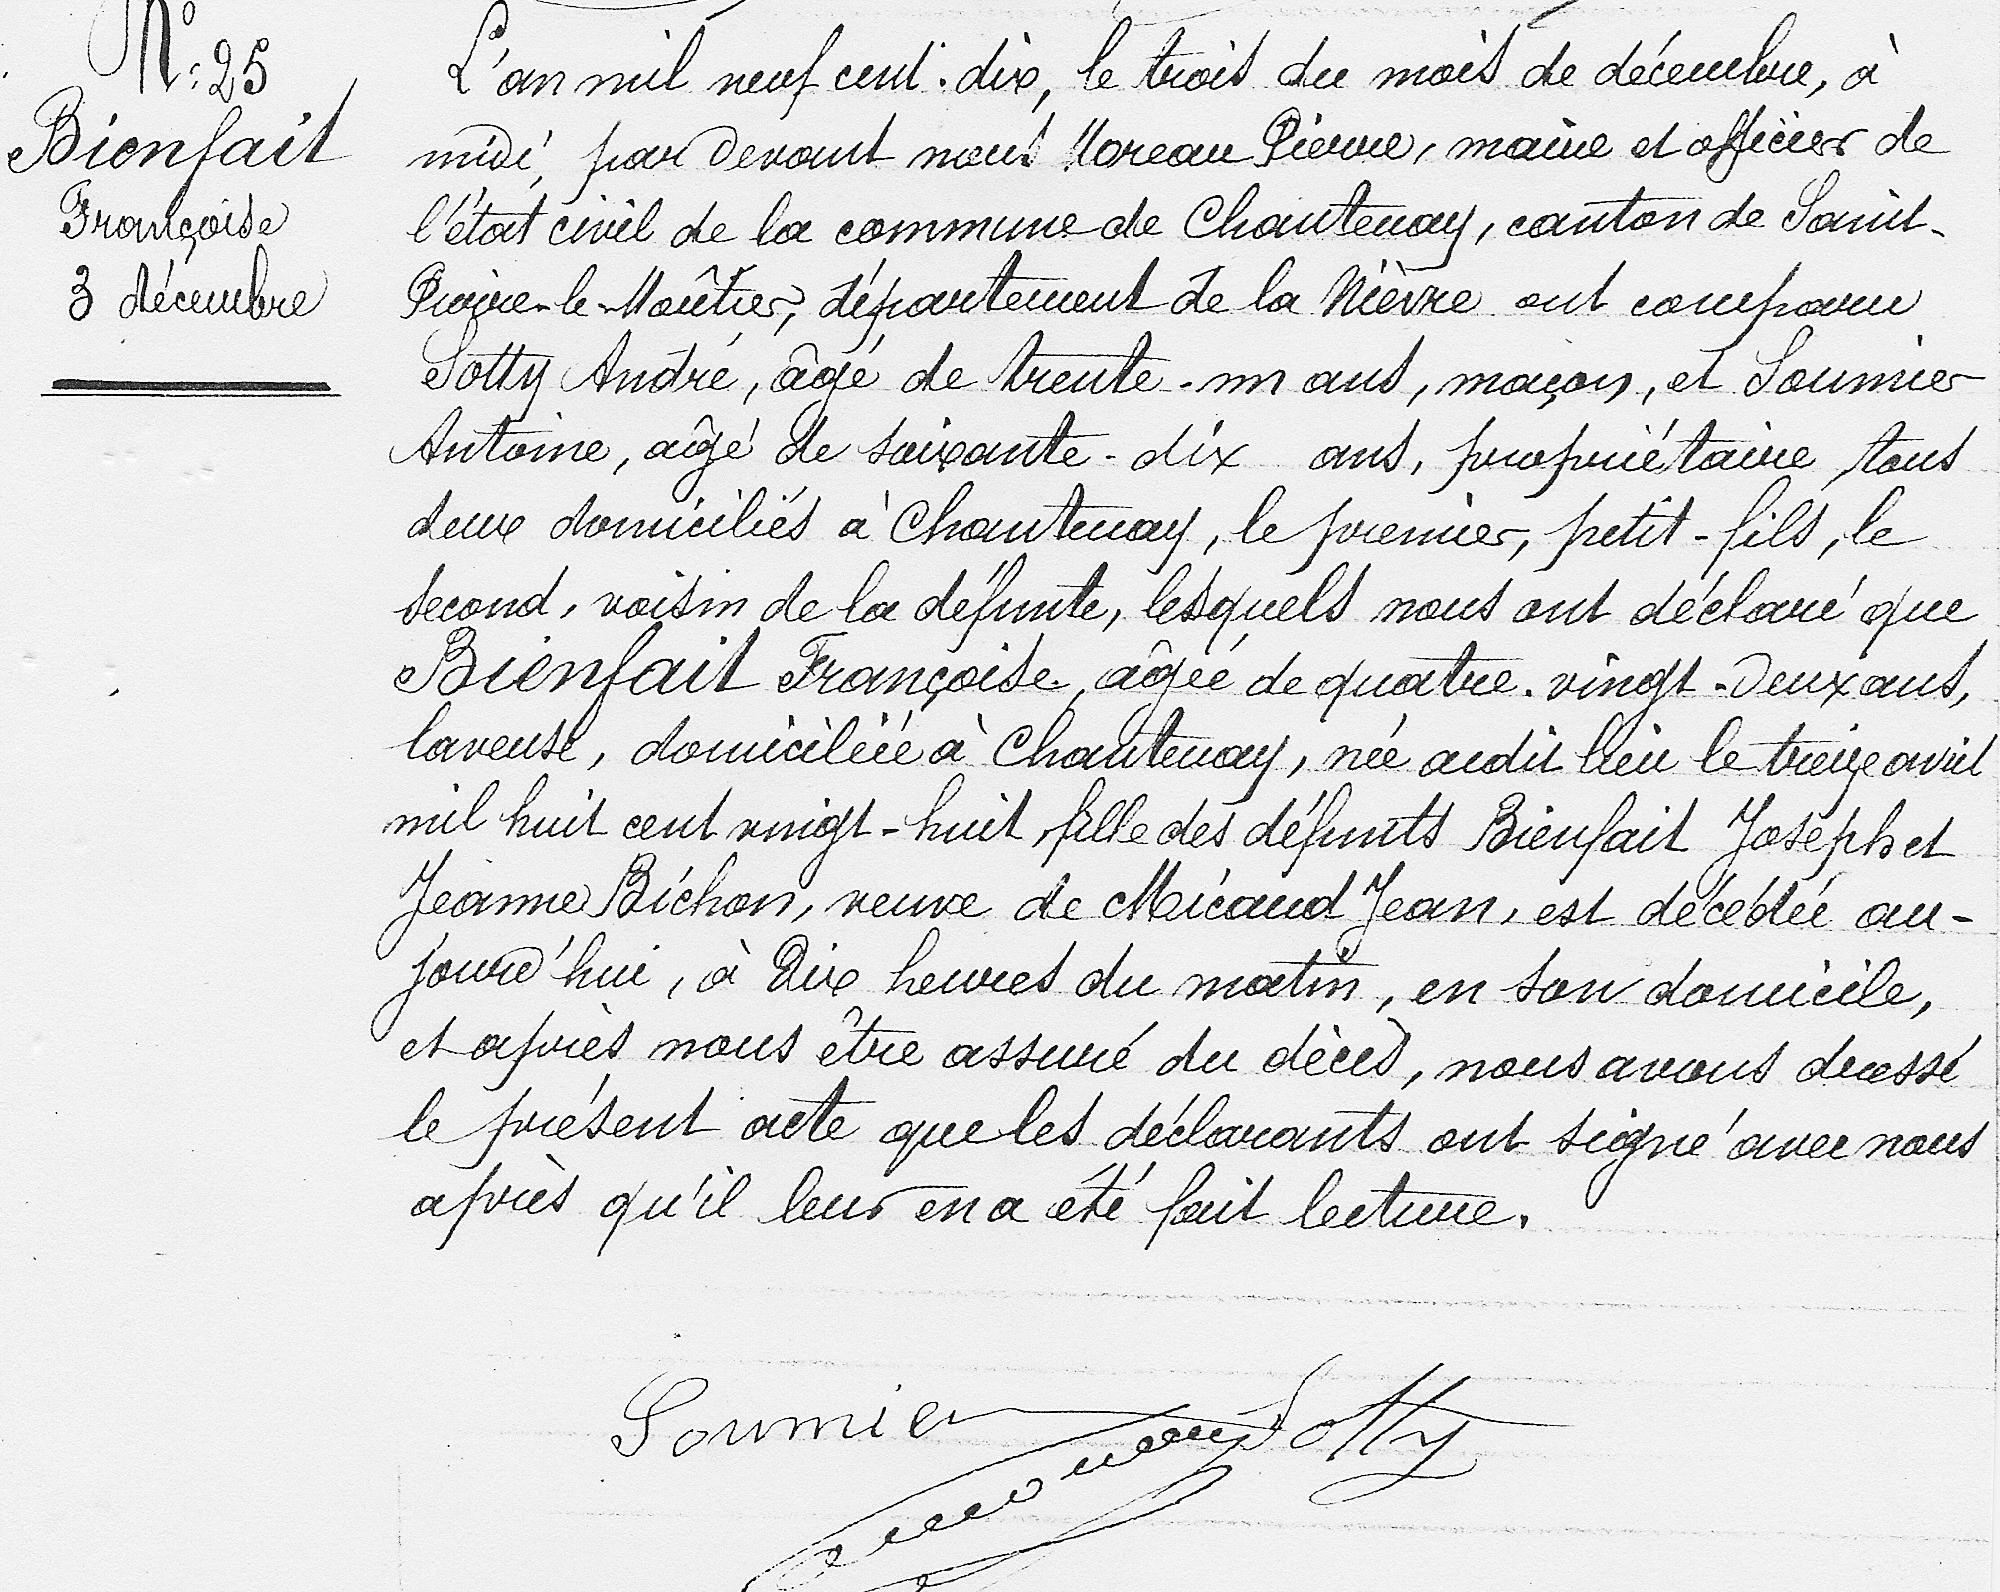 N°: 25
Bienfait
Françoise
3 décembre
L'an mil neuf cent-dix, le trois du mois de décembre, à
midi, par devant nous Moreau Pierre, maire et officier de
l'état civil de la commune de Chantenay, canton de Saint-
Pierre-le-Moûtier, département de la Nièvre ont comparu
Sotty André, âgé de trente-un ans, maçon, et Soumier
Antoine, âgé de soixante-dix ans, propriétaire tous
deux domiciliés à Chantenay, le premier, petit-fils, le
second, voisin de la défunte, lesquels nous ont déclaré que
Bienfait Françoise, âgée de quatre-vingt-deux ans,
laveuse, domiciliée à Chantenay, née audit lieu le treize avril
mil huit cent vingt-huit, fille des défunts Bienfait Joseph et
Jeanne Bichon, veuve de Micaud Jean, est décédée au-
jourd'hui, à dix heures du matin, en son domicile,
et après nous être assuré du décès, nous avons dressé
le présent acte que les déclarants ont signé avec nous
après qu'il leur en a été fait lecture.
Soumier Sotty